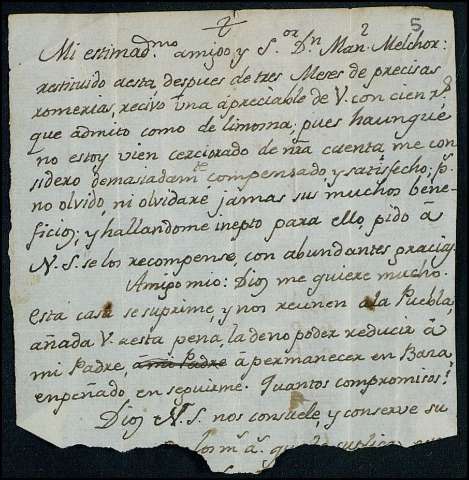 2
5
Mi estimad.mo amigo y S.or D.n Man.l Melchor:
restituido aesta, despues de tres Meses de precisas
romerias, recivo una apreciable de V. con cien r.s
que admito como de limosna; pues haunque
no estoy vien cerciorado de nra cuenta me con
sidero demasiadam.te compensado y satisfecho; p.s
no olvido, ni olvidare jamas sus muchos bene-
ficios; y hallandome inepto para ello, pido á
N. S. se los recompense, con abundantes gracias.
Amigo mio: Dios me quiere mucho.
Esta casa se suprime, y nos reunen a la Puebla,
añada V. aesta pena, la deno poder reducir á
mi Padre, á mi Padre á permanecer en Bara
enpeñado, en seguirme. Quantos compromisos!
Dios N. S. nos consuele, y conserve su
los m.s a.s